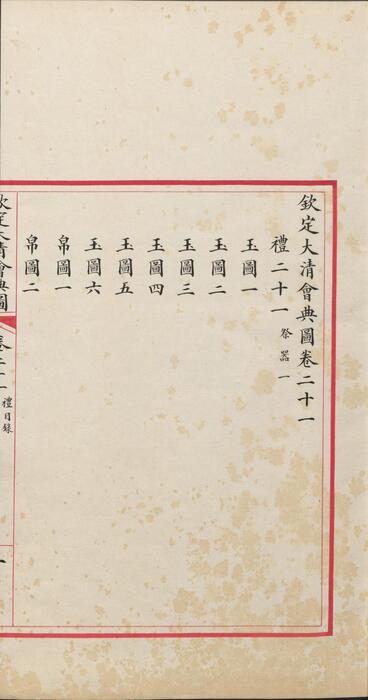 欽定大清會典圖卷二十一
禮二十一 祭器一
玉圖一
玉圖二
玉圖三
玉圖四
玉圖五
玉圖六
帛圖一
帛圖二
欽定大清會典圖 卷二十一 禮目錄 一